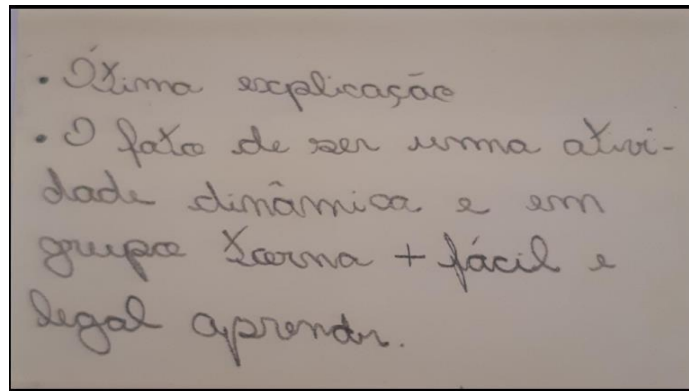 • Ótima explicação
• O fato de ser uma ativi-
dade dinâmica e em
grupo torna + fácil e
legal aprender.